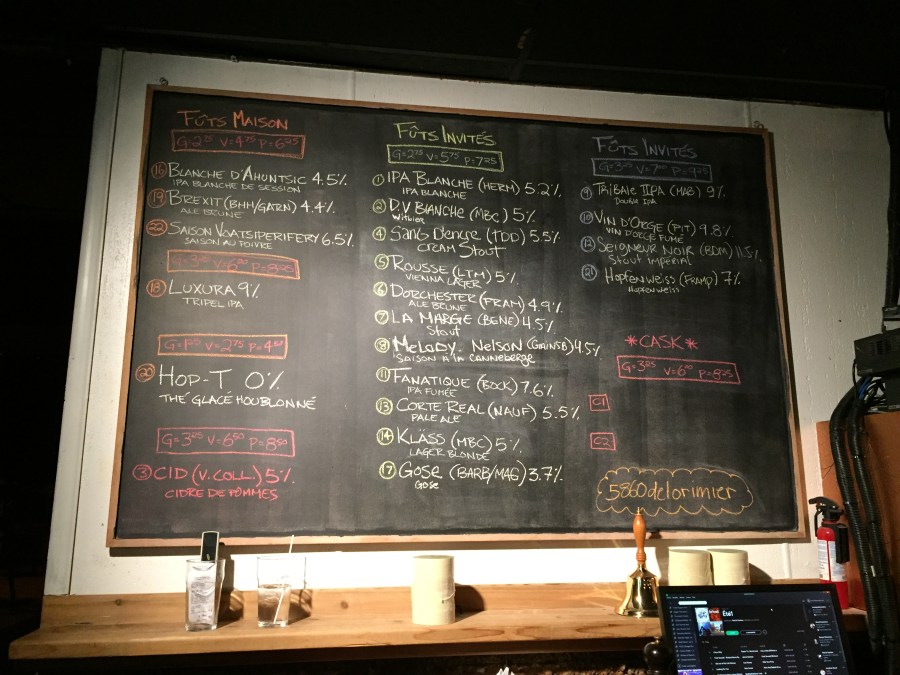 FÛTS MAISON
G=2.75 V=4.75 P=6.25
16 BLANCHE D'AHUNTSIC 4.5%
IPA BLANCHE DE SESSION
19 BREXIT (BHH/GARN) 4.4%
ALE BRUNE
22 SAISON VOATSIPERIFERY 6.5%
SAISON AU POIVRE
18 LUXURA 9%
TRIPEL IPA
20 HOP-T 0%
THÉ GLACÉ HOUBLONNÉ
G=3.25 V=6.50 P=8.50
3 CID (V.COLL) 5%
CIDRE DE POMMES
FÛTS INVITÉS
G=2.75 V=5.75 P=7.25
1 IPA BLANCHE (HERM) 5.2%
IPA BLANCHE
2 D.V BLANCHE (MBC) 5%
Witbier
4 SANG D'encre (TDD) 5.5%
CREAM STOUT
5 ROUSSE (LTM) 5%
VIENNA LAGER
6 DORCHESTER (FRAM) 4.9%
ALE BRUNE
7 LA MARGE (BENE) 4.5%
Stout
8 MeLODY NeLSON (GAINSB) 4.5%
SAISON à la CANNEBERGE
11 FANATIQUE (BOCK) 7.6%
IPA FUMÉE
13 CORTE REAL (NAUF) 5.5%
PALE ALE
14 KLÄSS (MBC) 5%
LAGER BLONDE
17 GOSE (BARB/MAG) 3.7%
GOSE
FÛTS INVITÉS
9 TRIBALE IIPA (MAB) 9%
DOUBLE IPA
10 VIN D'ORGE (PIT) 9.8%
VIN D'ORGE FUMÉ
12 SEIGNEUR NOIR (BDM) 11.5%
Stout IMPÉRIAL
21 Hopfenweiss (FRAMP) 7%
Hopfenweiss
*CASK*
G=3.25 V=6.00 P=8.25
C1
C2
5860delorimier
Été!